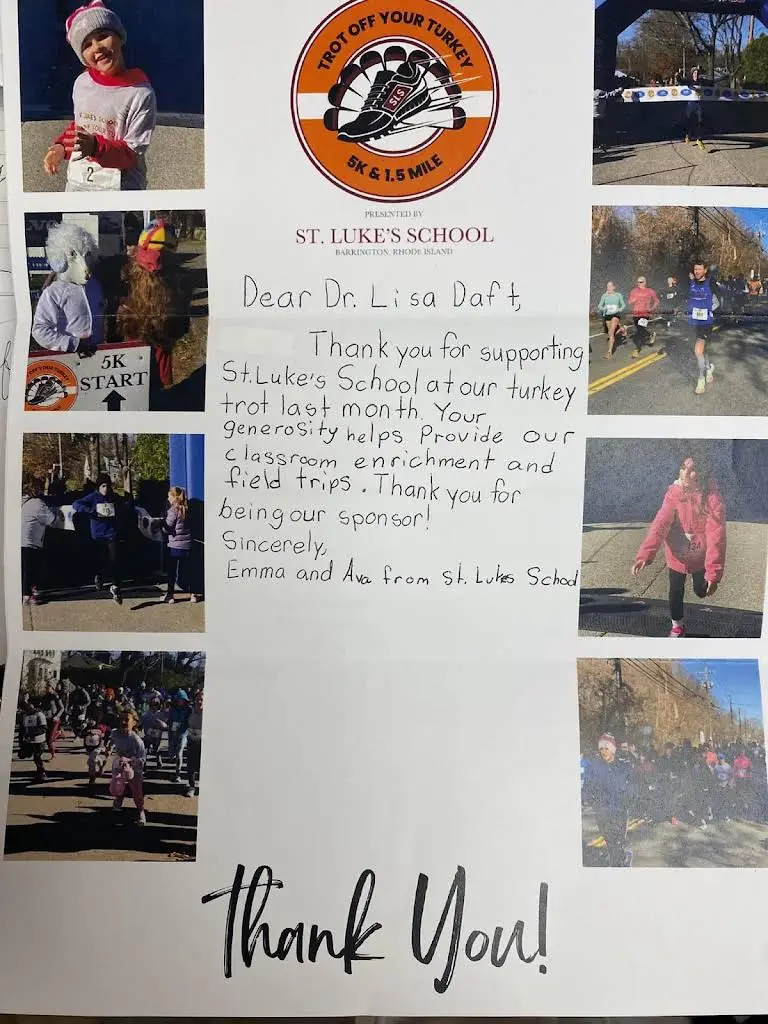 TROT OFF YOUR TURKEY
SLS
5K & 1.5 MILE
PRESENTED BY
ST. LUKE'S SCHOOL
BARRINGTON, RHODE ISLAND
Dear Dr. Lisa Daft,
Thank you for supporting
St. Luke's School at our turkey
trot last month. Your
generosity helps Provide our
classroom enrichment and
field trips. Thank you for
being our sponsor!
Sincerely,
Emma and Ava from St. Lukes School
2
5K
START
Thank You!